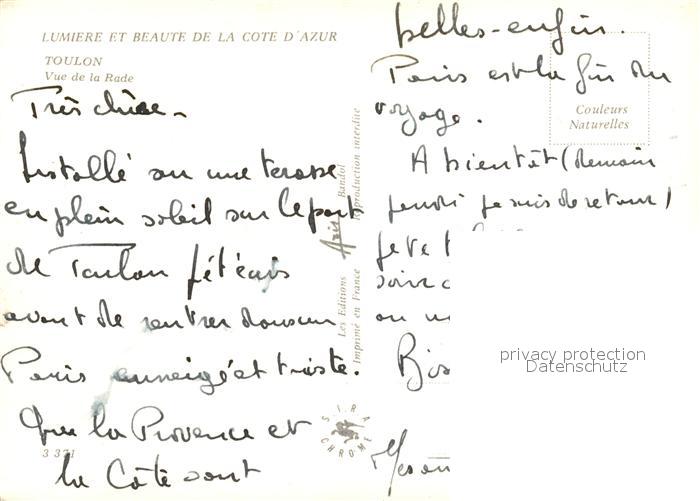 LUMIERE ET BEAUTE DE LA COTE D'AZUR
TOULON
Vue de la Rade
Très chère -
Installé sur une terasse
en plein soleil sur le port
de Toulon je t'écris
avant de rentrer dans un
Paris enneigé et triste.
Que la Provence et
la Côte sont
3 371
Les Editions Bandol
Imprimé en France
Reproduction interdite
SIRA CHROME
belles - enfin.
Paris est la fin du
voyage.
Couleurs
Naturelles
A bientôt (demain
jeudi je suis de retour)
je te
ou
privacy protection
Datenschutz